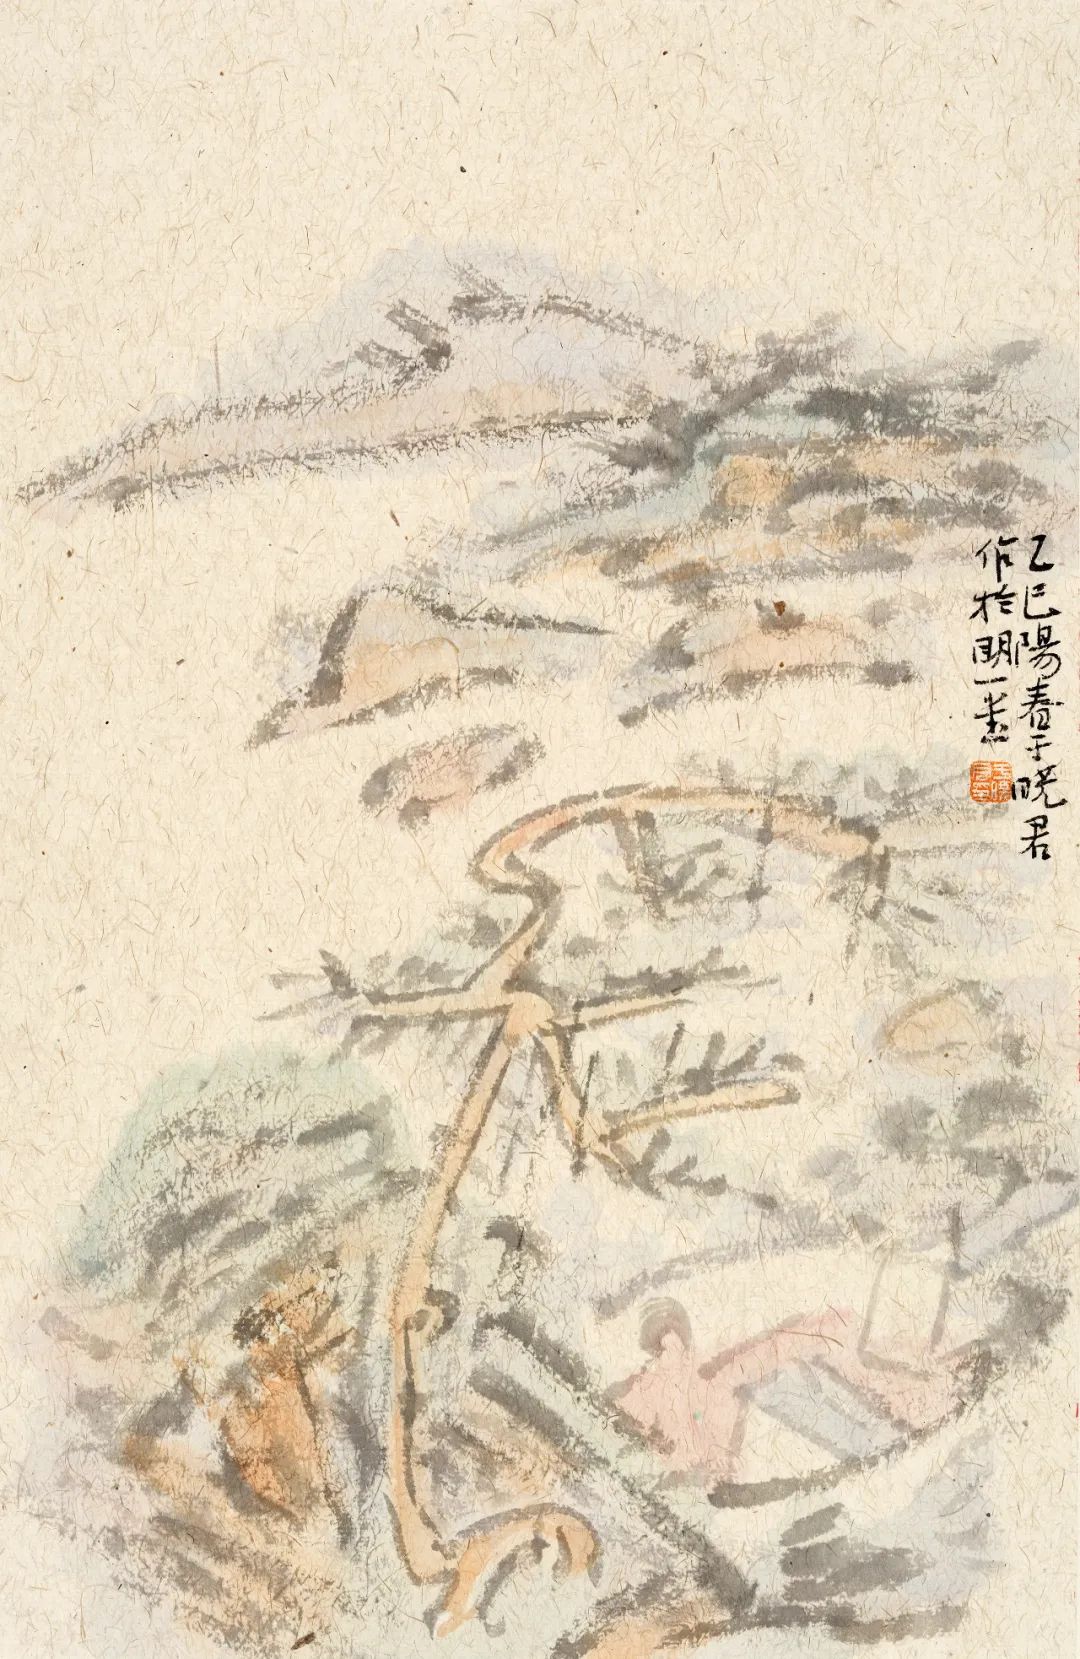 乙巳陽春于曉君
作於明一堂